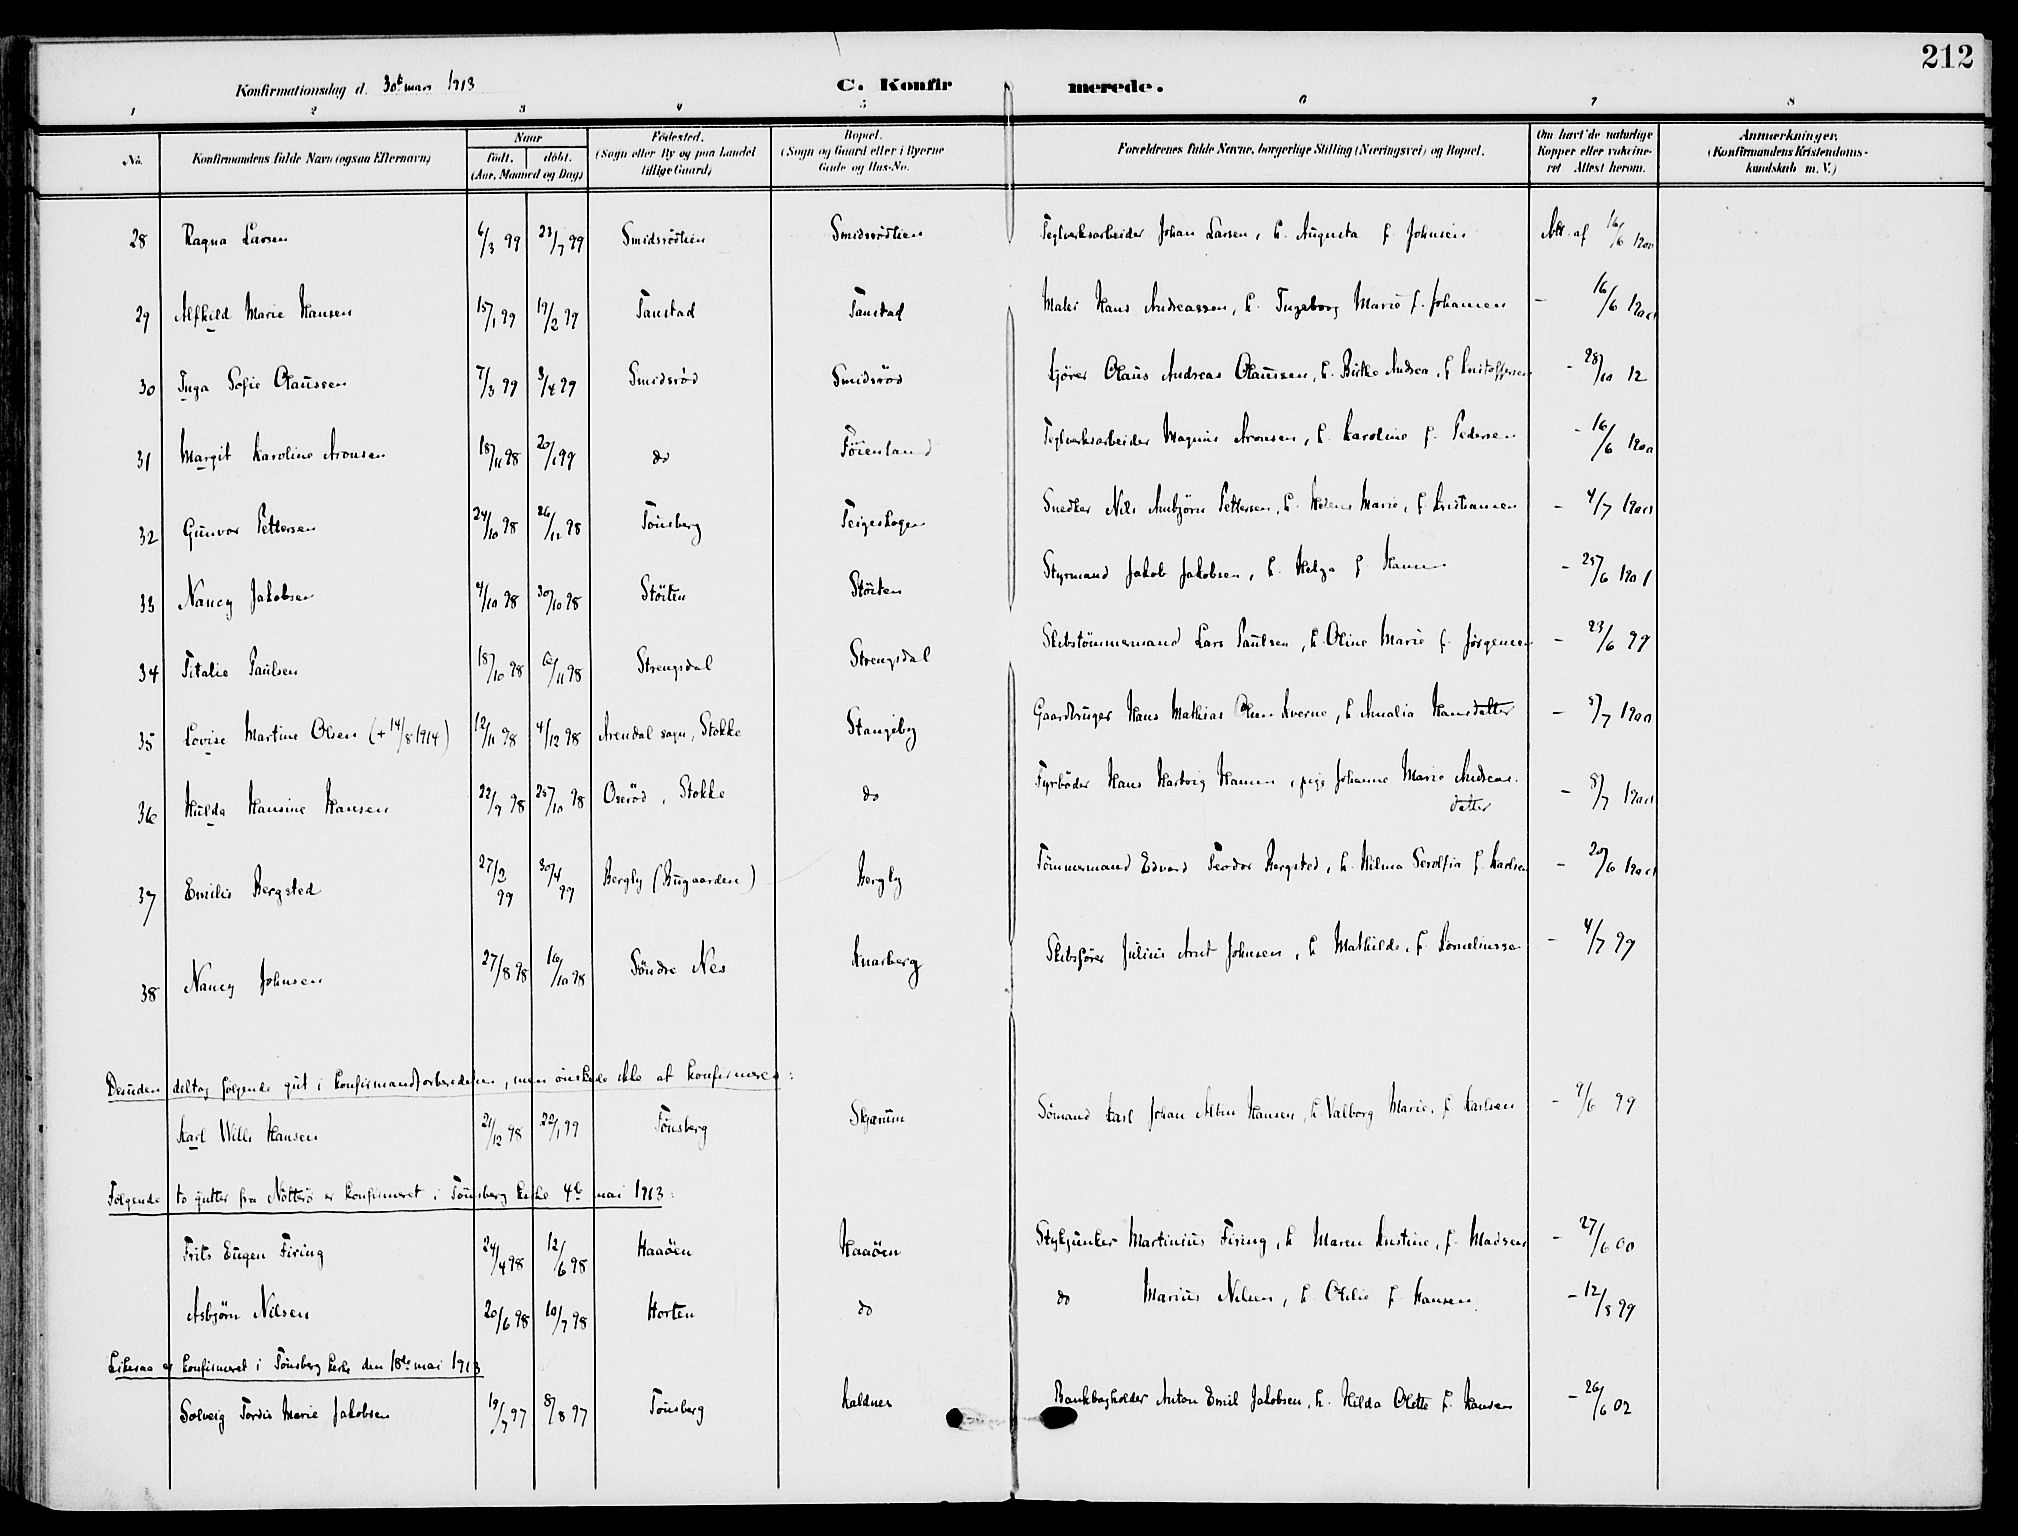 212
Konfirmationsdag d. 30te mars 1913 C. Konfirmerede.
1 2 3 4 5 6 7 8
No. Konfirmandens fulde Navn (ogsaa Efternavn) Naar födt. döbt. (Aar, Maaned og Dag) Födested. (Sogn eller By og paa Landet tillige Gaard) Bopæl. (Sogn og Gaard eller i Byerne Gade og Hus-No. Forældrenes fulde Navne, borgerlige Stilling (Næringsvei) og Bopæl. Om havt de naturlige Kopper eller vakcineret Attest herom. Anmærkninger. (Konfirmandens Kristendomskundskab m. V.)
28 Ragna Larsen 6/3 99 23/7 99 Smidsrödlien Smidsrödlien Teglverksarbeider Johan Larsen, h. Augusta f. Johnsen Att. af 16/6 1900
29 Alfhild Marie Hansen 15/1 99 19/2 99 Tanstad Tanstad Maler Hans Andreassen, h. Ingeborg Marie f. Johansen - 16/6 1900
30 Inga Sofie Olaussen 7/3 99 3/4 99 Smidsröd Smidsröd Kjörer Olaus Andreas Olaussen, h. Birthe Andrea f. Kristoffersen - 28/10 12
31 Margit Karoline Aronsen 18/11 98 20/1 99 do Föienland Teglverksarbeider Magnus Aronsen, h. Karoline f. Pedersen - 16/6 1900
32 Gunvor Pettersen 24/10 98 26/12 98 Tönsberg Teigeskogen Snedker Nils Arnbjörn Pettersen, h. Helene Marie, f. Kristiansen - 4/7 1900
33 Nancy Jakobsen 4/10 98 30/10 98 Stöiten Stöiten Styrmand Jakob Jakobsen, h. Helga f. Hansen - 25/6 1901
34 Titalie Paulsen 18/10 98 6/11 98 Strengsdal Strengsdal Skibstömmermand Lars Paulsen, h. Oline Marie f. Jörgensen - 23/6 99
35 Lovise Martine Olsen (+ 14/8 1914) 12/11 98 4/12 98 Arendal sogn, Stokke Stangeby Gaardbruger Hans Mathias Olsen Kverne, h. Amalia Hansdatter - 5/7 1900
36 Hulda Hansine Hansen 22/9 98 25/10 98 Oseröd, Stokke do Fyrböder Hans Hartvig Hansen, pige Johanne Marie Andreas-
datter - 8/7 1900
37 Emilie Bergsted 27/2 99 30/4 99 Bergly (Bugaarden) Bergly Tömmermand Edvard Teodor Bergsted, h. Hilma Serolfia f. Karlsen - 20/6 1900
38 Nancy Johnsen 27/8 98 16/10 98 Söndre Nes Knarberg Skibsförer Julius Arnt Johnsen, h. Mathilde, f. Kornelinssen - 4/7 99
Desuden deltog følgende gut i konfirmandforberedelsen, men önskede ikke at konfirmeres:
Karl Willi Hansen 21/12 98 22/1 99 Tönsberg Skjærum Sömand Karl Johan Albin Hansen, h. Valborg Marie, f. Karlsen - 9/6 99
Følgende to gutter fra Nötterö er konfirmeret i Tönsberg kirke 4de mai 1913:
Frits Eugen Firing 24/4 98 12/6 98 Haaöen Haaöen Stykjunker Martinius Firing, h. Maren Kristine, f. Madsen - 27/6 00
Asbjörn Nilsen 20/6 98 10/7 98 Horten do do Marius Nilsen, h. Otilie f. Hansen - 12/8 99
Likesaa er konfirmeret i Tönsberg kirke den 18de mai 1913
Solveig Tordis Marie Jakobsen 19/7 97 8/8 97 Tönsberg Kaldnes Bankbogholder Anton Emil Jakobsen, h. Hilda Olette f. Hansen - 26/6 02